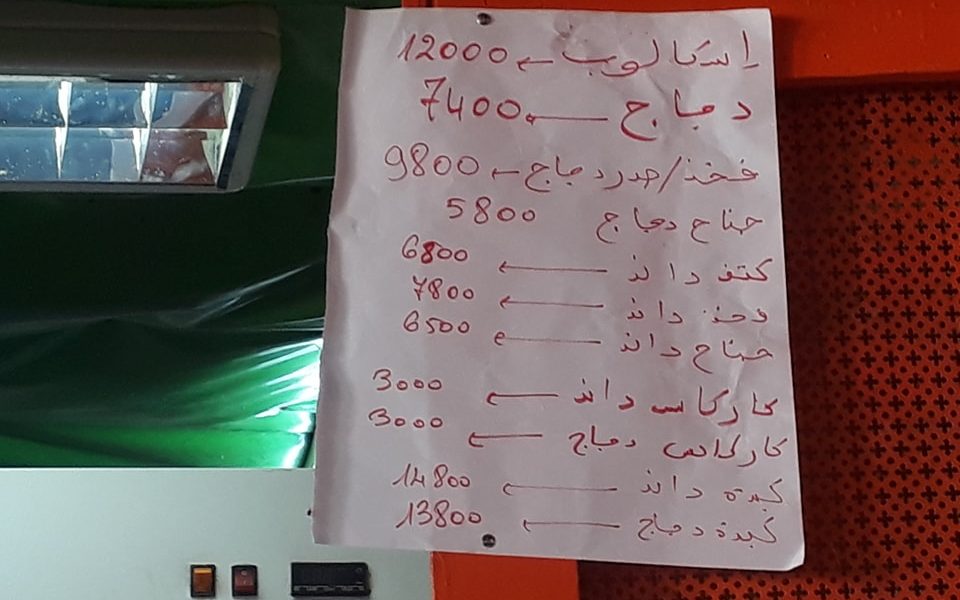 إسكالوب ← 12000
دجاج ← 7400
فخذ/صدر دجاج ← 9800
جناح دجاج 5800
كتف داند ← 6800
فخذ داند ← 7800
جناح داند ← 6500
كاركاس داند ← 3000
كاركاس دجاج ← 3000
كبدة داند ← 14800
كبدة دجاج ← 13800